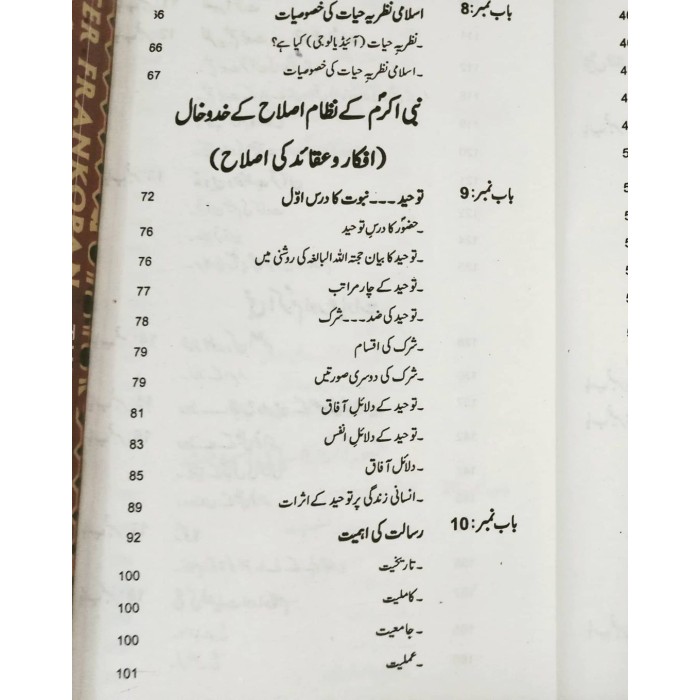 باب نمبر: 8 اسلامی نظریہ حیات کی خصوصیات 66
۔ نظریہ حیات (آئیڈیالوجی) کیا ہے؟ 66
۔ اسلامی نظریہ حیات کی خصوصیات 67
نبی اکرمؐ کے نظام اصلاح کے خدوخال
(افکار و عقائد کی اصلاح)
باب نمبر: 9 توحید ۔۔۔ نبوت کا درس اوّل 72
۔ حضورؐ کا درسِ توحید 76
۔ توحید کا بیان حجتہ اللہ البالغہ کی روشنی میں 76
۔ توحید کے چار مراتب 77
۔ توحید کی ضد ۔۔۔ شرک 78
۔ شرک کی اقسام 79
۔ شرک کی دوسری صورتیں 79
۔ توحید کے دلائلِ آفاق 81
۔ توحید کے دلائلِ انفس 83
۔ دلائل آفاق 85
۔ انسانی زندگی پر توحید کے اثرات 89
باب نمبر: 10 رسالت کی اہمیت 92
۔ تاریخیت 100
۔ کاملیت 100
۔ جامعیت 100
۔ عملیت 101